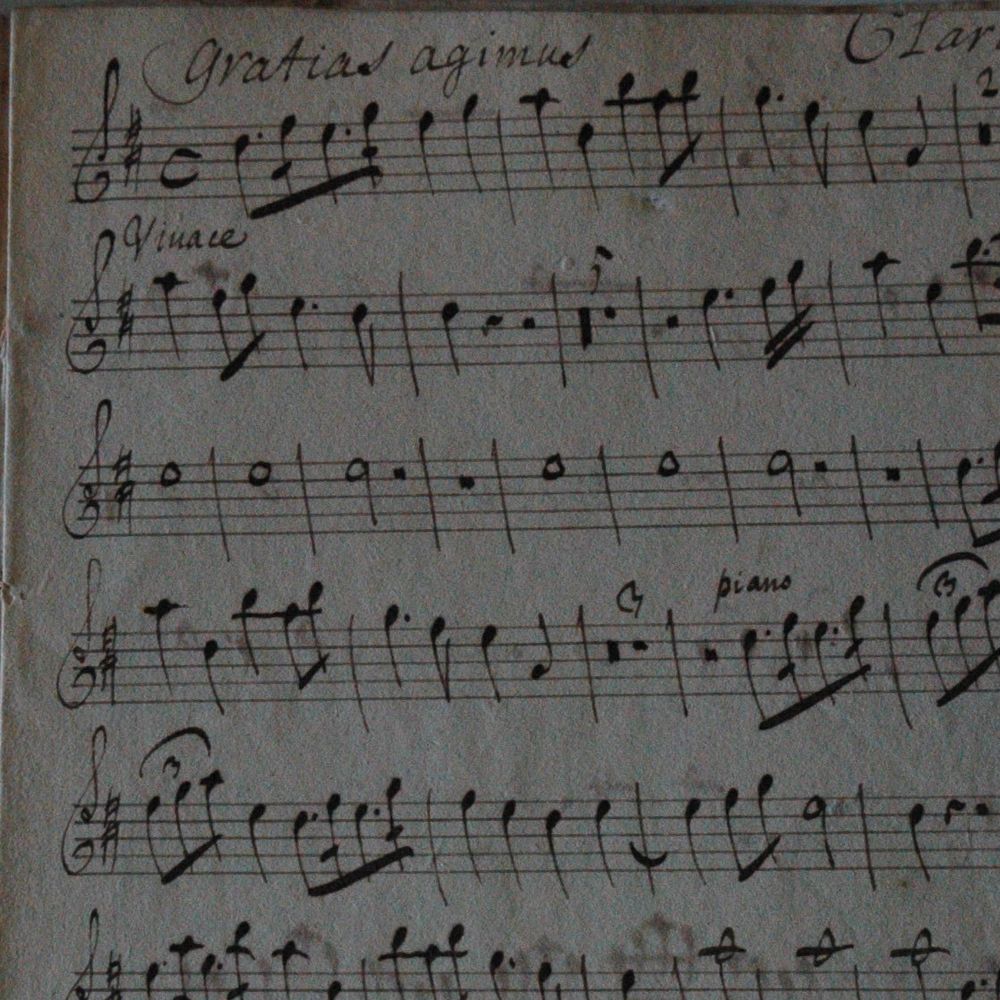 Gratias agimus Clar
2
Vivace
5
piano
3
3
3